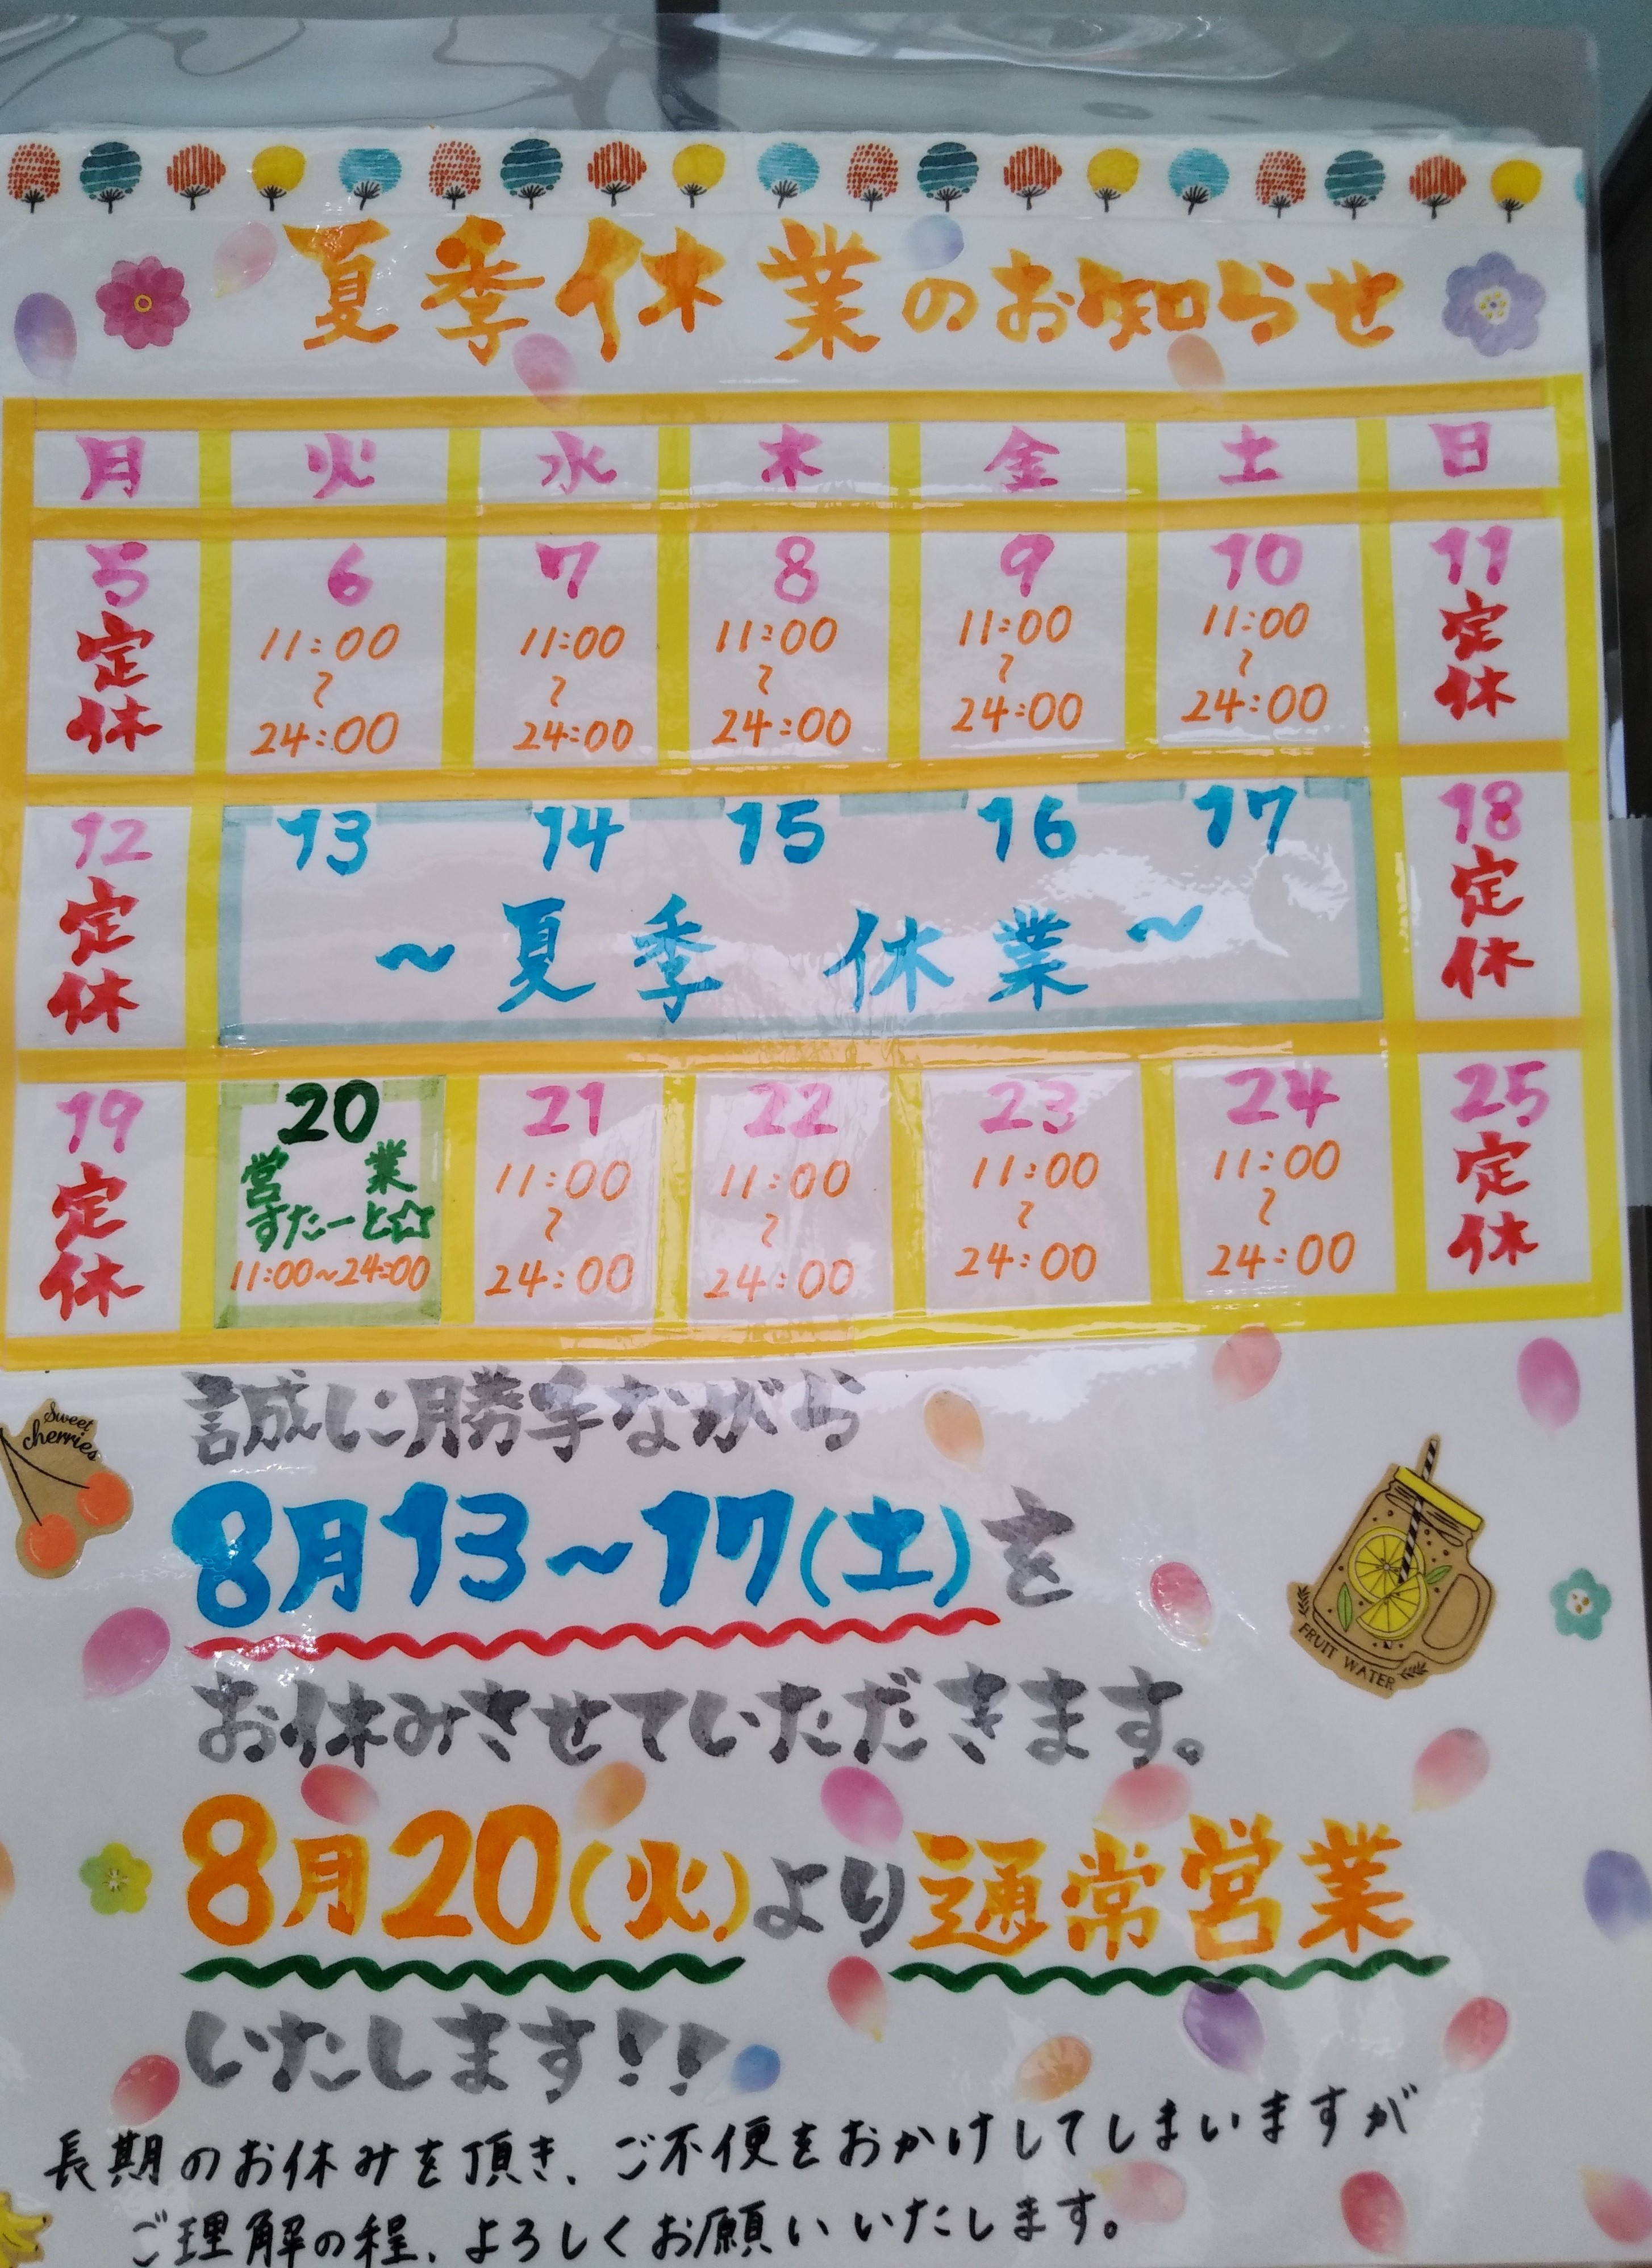 夏季休業のお知らせ
月 火 水 木 金 土 日
5 6 7 8 9 10 11
定休 11:00〜24:00 11:00〜24:00 11:00〜24:00 11:00〜24:00 11:00〜24:00 定休
12 13 14 15 16 17 18
定休 〜夏季休業〜 定休
19 20 21 22 23 24 25
定休 営業すたーと☆ 11:00〜24:00 11:00〜24:00 11:00〜24:00 11:00〜24:00 11:00〜24:00 定休
誠に勝手ながら
Sweet
cherries
8月13〜17(土)を
FRUIT WATER
お休みさせていただきます。
8月20(火)より通常営業
いたします!!
長期のお休みを頂き、ご不便をおかけしてしまいますが
ご理解の程、よろしくお願いいたします。